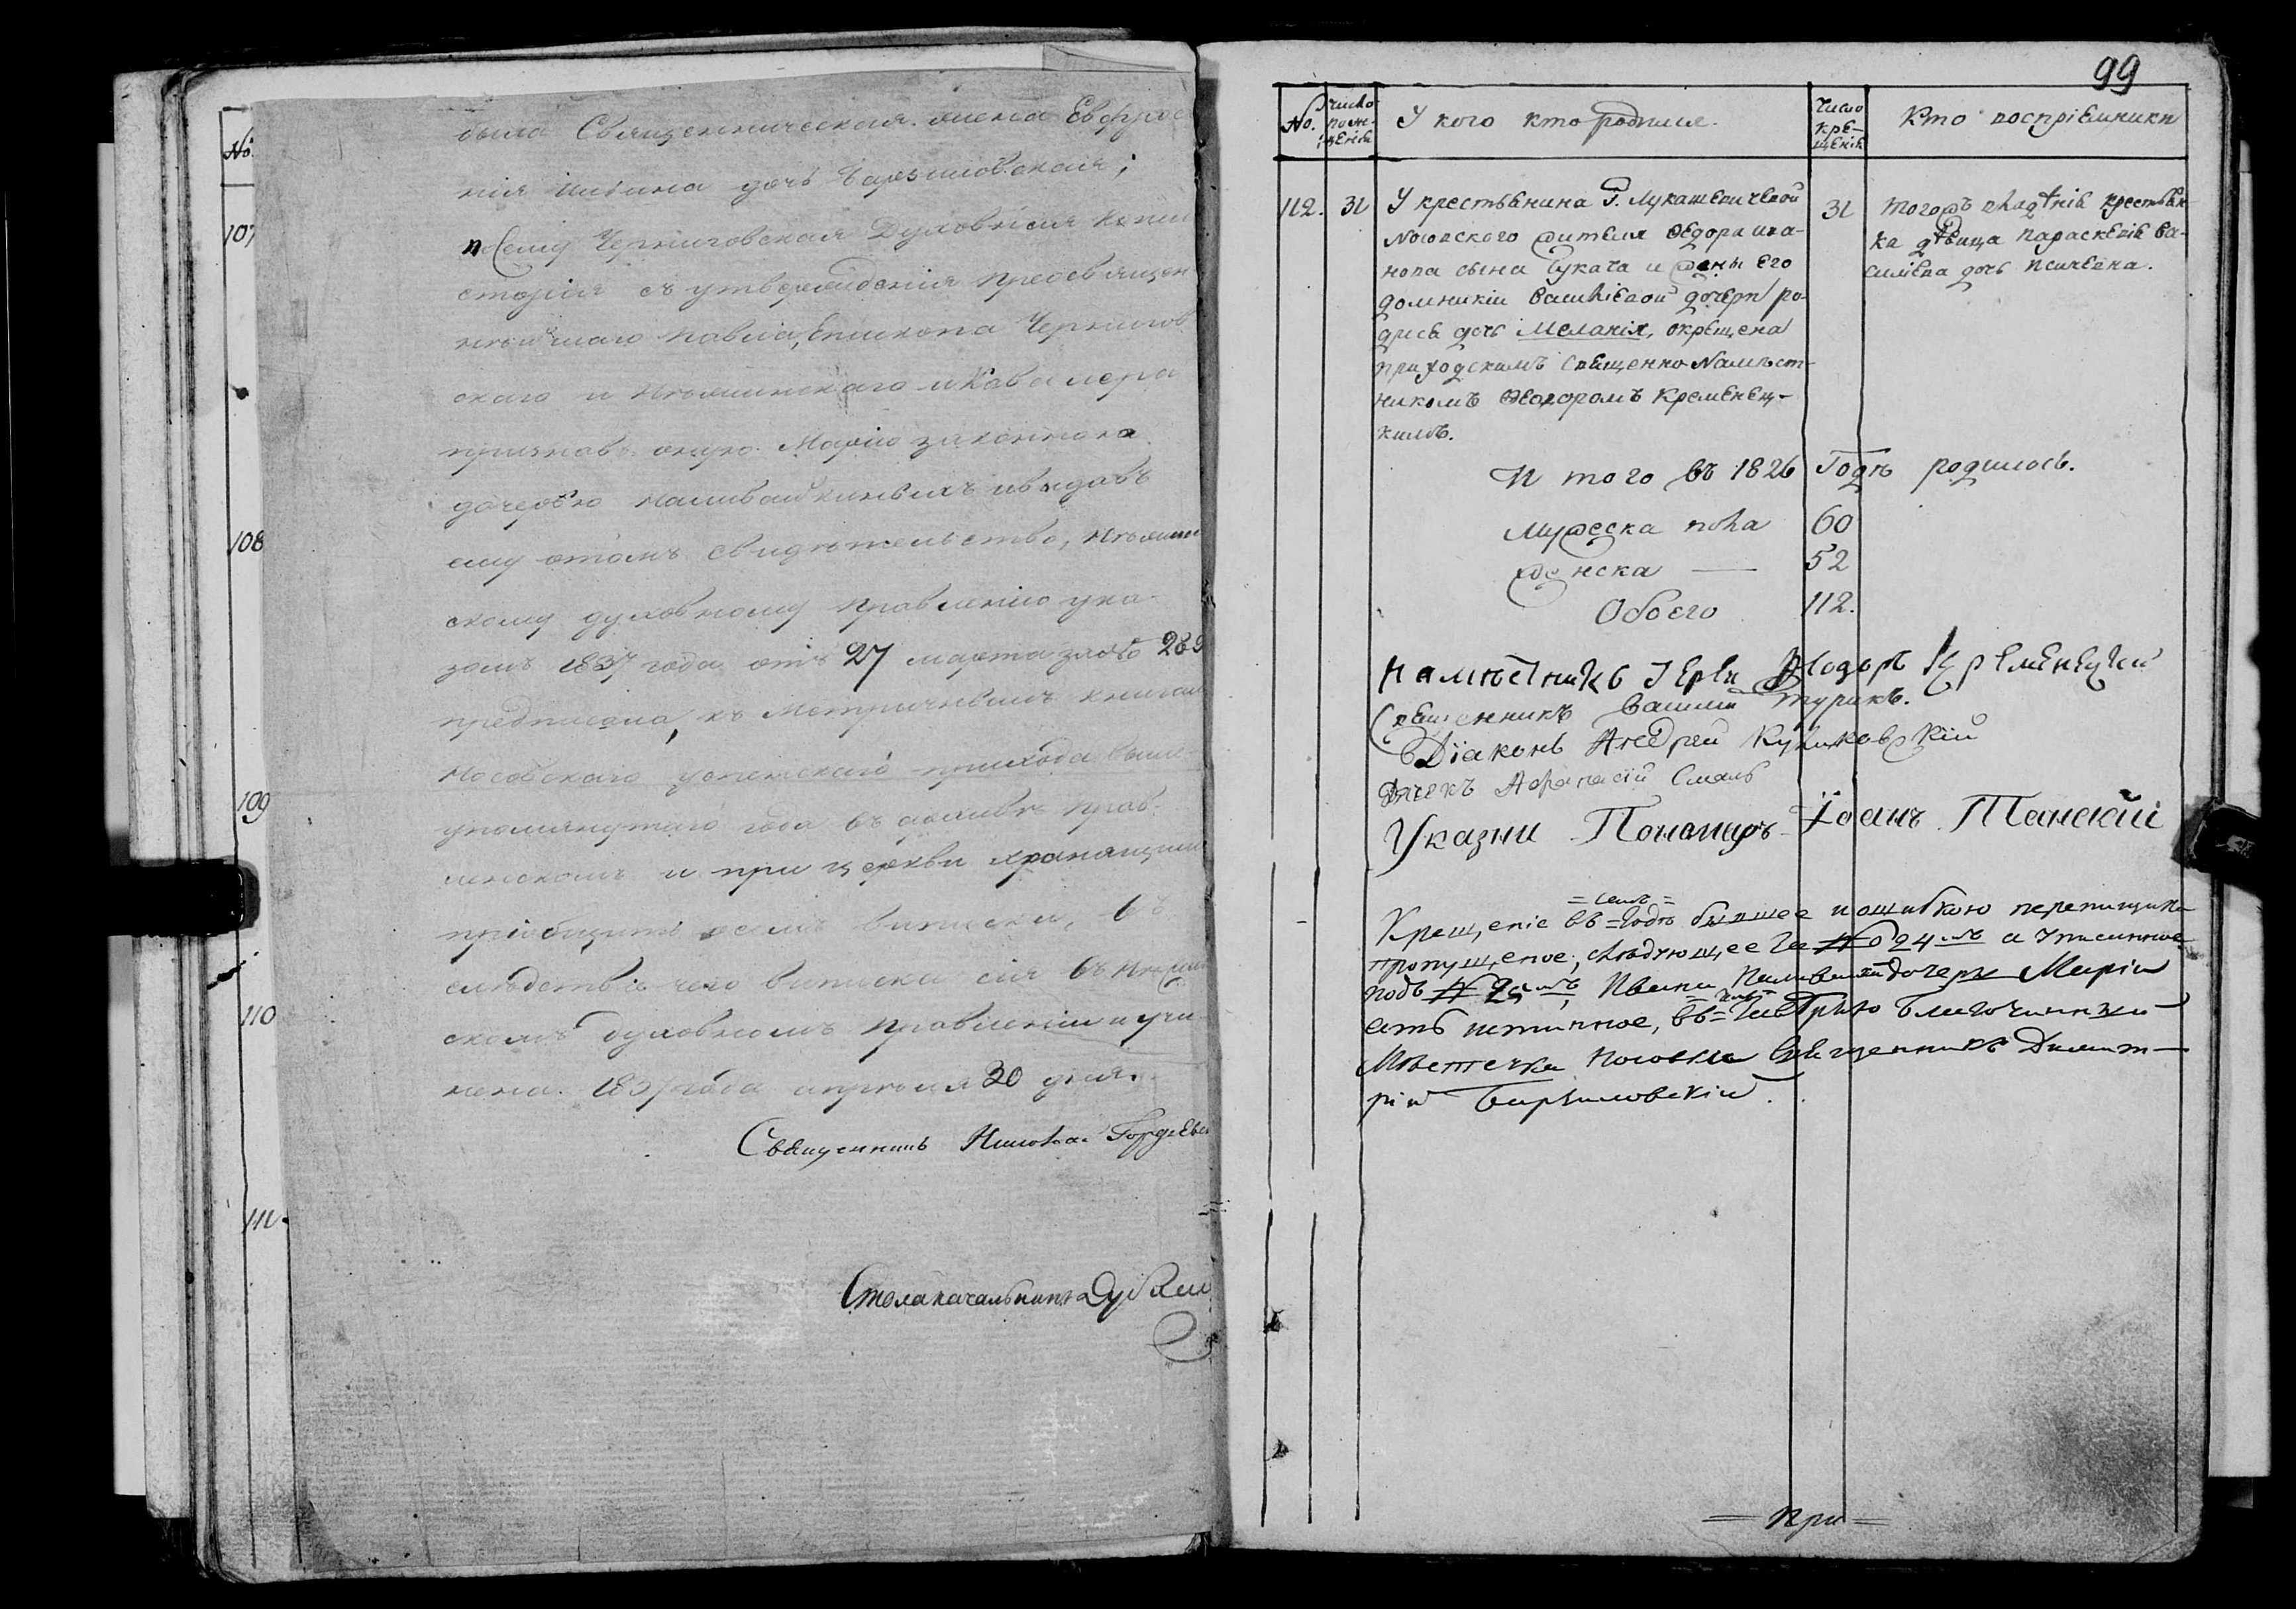 была Священническая жена Евфрос
нія Иліина дочь Барзиловская;
по сему Черниговская Духовная Конси
сторія съ утвержденія Преосвящен
нѣйшаго Павла, Епископа Чернигов
скаго и Нѣжинскаго и Кавалера
признавъ оную Марію законною
дочерью
ему о томъ свидѣтельство, Нѣжин
скому духовному Правленію ука-
зомъ 1837 года отъ 27 марта за №
предписала, къ Метричнымъ книгам
Носовскаго Успенскаго прихода выше
упомянутаго года въ архивѣ Прав-
ленскомъ и при церкви хранящим
пріобщить выписки, въ
слѣдствіе чего выписка сія въ Нѣжин
скомъ духовномъ Правленіи и учи-
нена. 1837 года апрѣля 30 дня.
Священникъ Николай Гордѣев
Столоначальникъ
№.
107
108
109
110
111.
99
№.
Число рожденія
У кого кто родился.
Число кре-
щенія
Кто воспріемники
112. 31
У крестьянина Г. Лукашевичевой
Носовского жителя Ѳедора Ива-
нова сына Букача и жены его
Домникіи Василіевой дочери ро-
дись дочь Меланія, окрещена
приходскимъ Священно-Намѣст-
никомъ Ѳеодоромъ Кременец-
кимъ.
31
Тогожъ владѣнія крестьян
ка дѣвица Параскевія Ва-
силіева дочь
И того въ 1826 Годѣ родилось.
Мужеска пола 60
женска — 52
Обоего 112.
Намѣстникъ Іерей Ѳеодоръ Кременецкій
Священникъ Василій Турикъ.
Діаконъ Андрей Куликовскій
Дьячекъ Афанасій Смаль
Указни Пономаръ Іоанъ Танскій
= семъ =
Крещеніе въ = Годѣ бывшее и ошибкою переписчика
пропущеное, слѣдующее за № 24мъ а Записанное
подъ № 25мъ, Ивана дочери Маріи
есть истинное, въ =
Мѣстечка Носовки Священникъ Димит-
рій Барзиловскій.
= При =